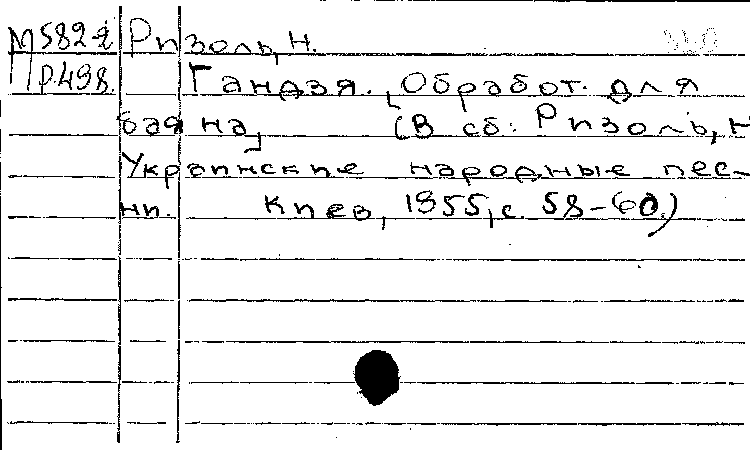 М582-2 Ризоль, Н.
Р.498. Гандзя. [Обработ. для
баяна] (В сб: Ризоль, Н
Украинские народные пес-
ни. Киев, 1955, с. 58-60.)